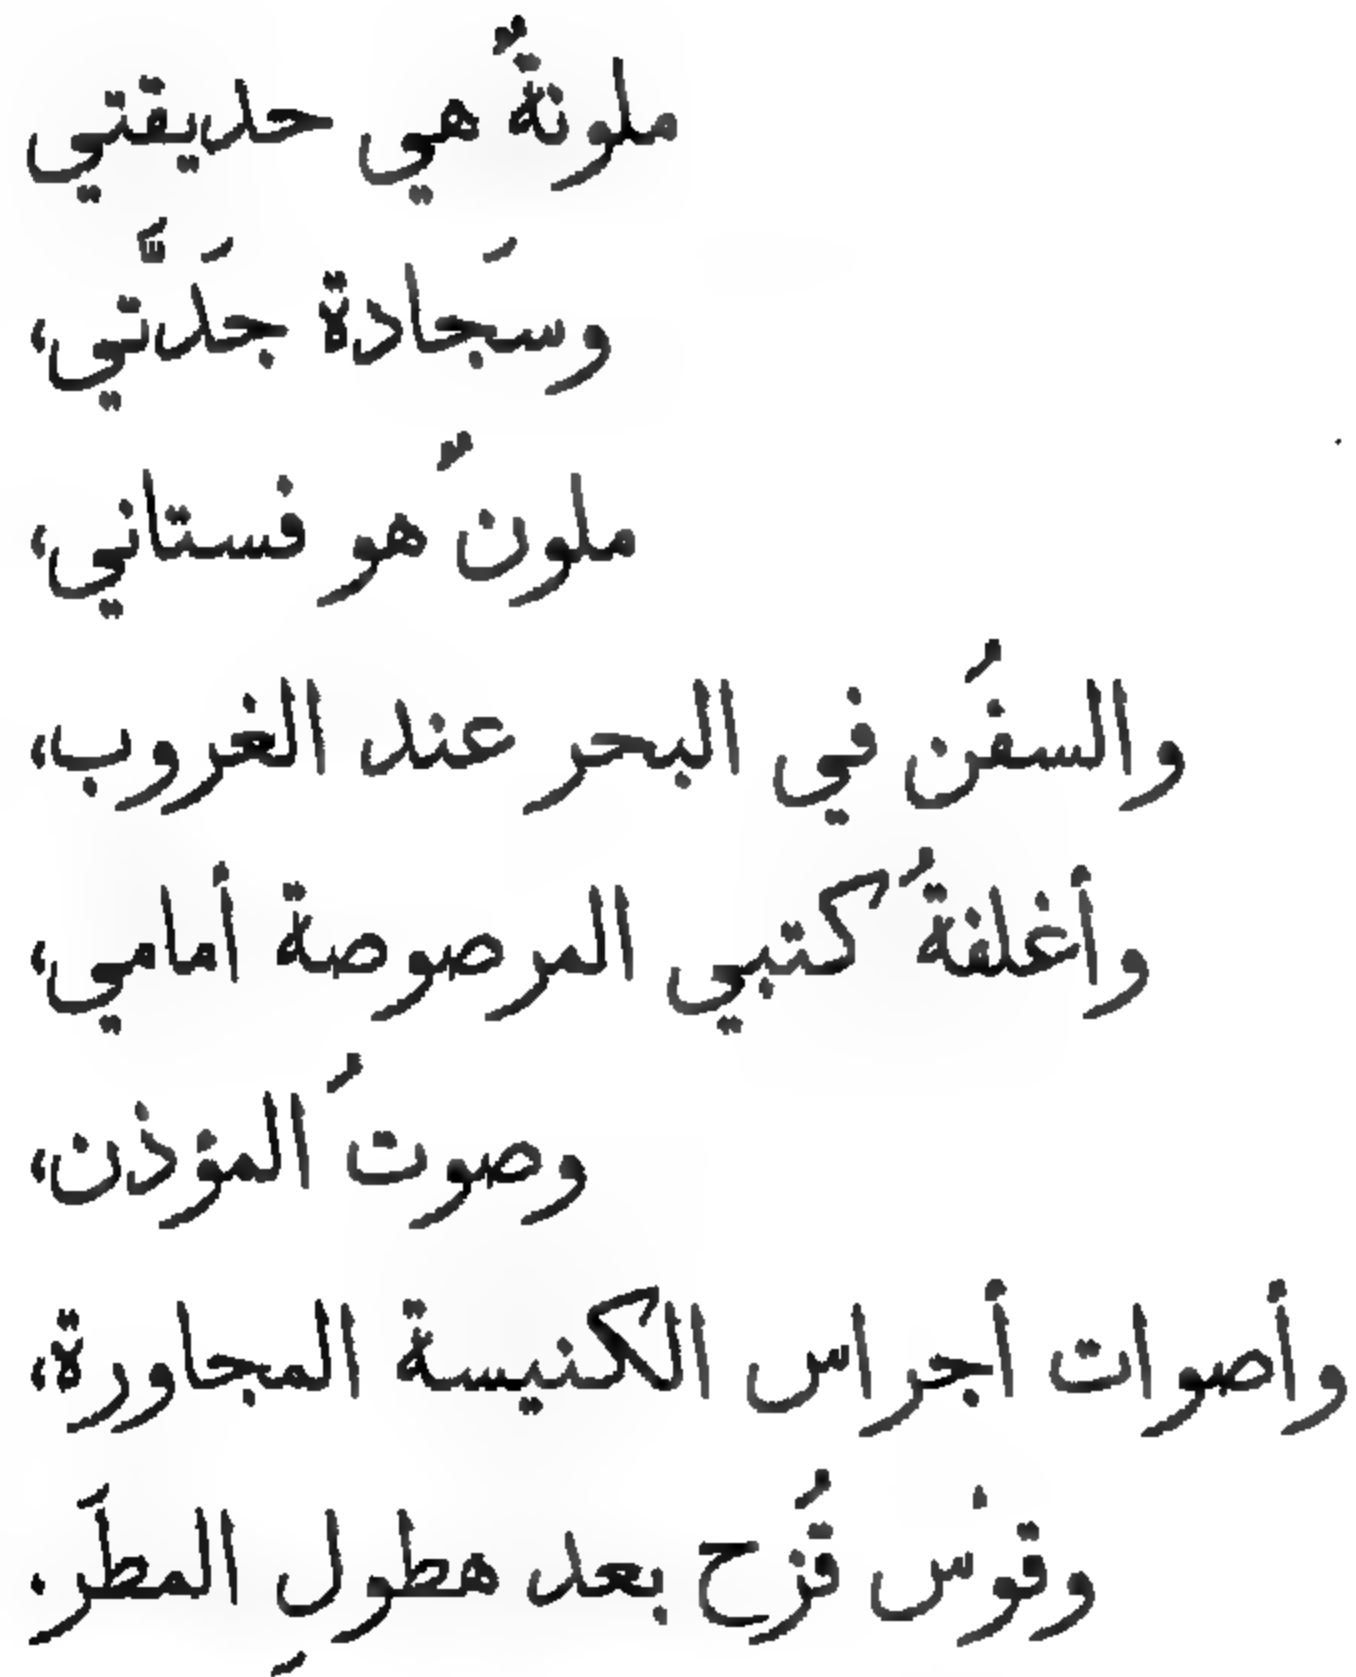 ملونةٌ هي حديقتي
وسَجادة جَدَّتي،
ملونٌ هو فستاني،
والسفُن في البحر عند الغروب،
وأغلفةُ كتبي المرصوصة أمامي،
وصوتُ المؤذن،
وأصوات أجراس الكنيسة المجاورة،
وقوْس قُزح بعد هطولِ المطَر.